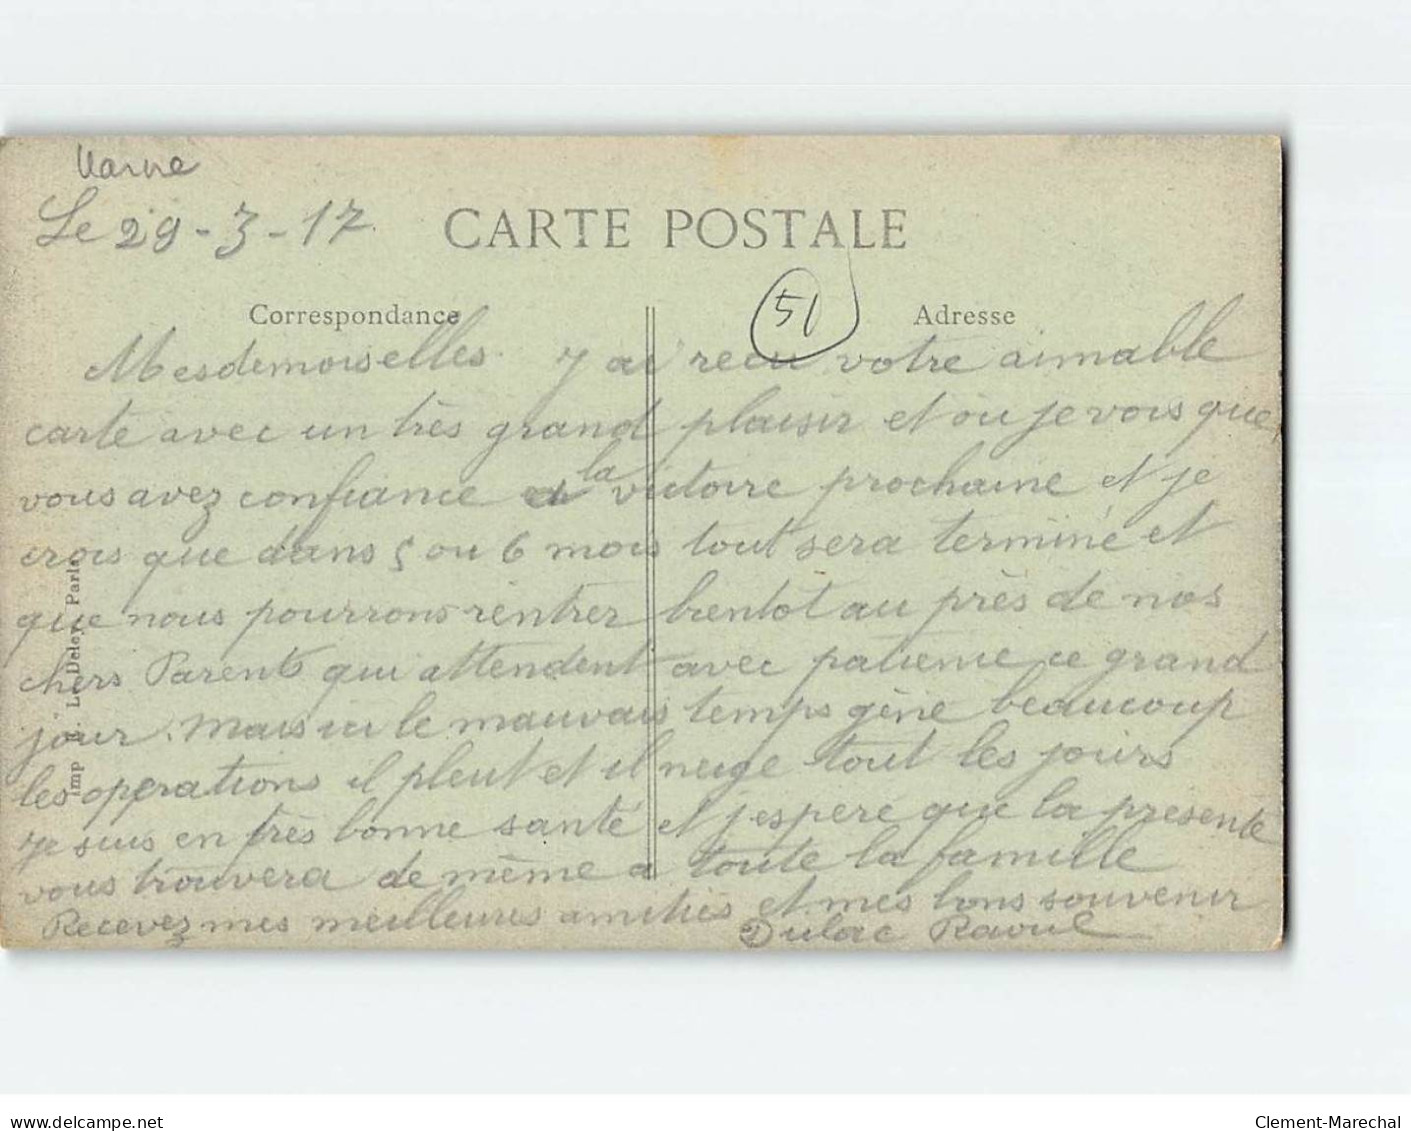 Marne
Le 29-3-17.
CARTE POSTALE
51
Correspondance
Adresse
Mesdemoiselles. J'ai recu votre aimable
carte avec un très grand plaisir et ou je vois que
vous avez confiance a la victoire prochaine et je
crois que dans 5 ou 6 mois tout sera terminé et
que nous pourrons rentrer bientot au près de nos
chers Parents qui attendent avec patience ce grand
jour. Mais ici le mauvais temps gène beaucoup
les opérations il pleut et il neige tout les jours
je suis en très bonne santé et j'espère que la présente
vous trouvera de même a toute la famille
Recevez mes meilleures amitiés et mes bons souvenir
Dulac Raoul
Imp E. Le Deley, Paris
www.delcampe.net
Clement-Marechal